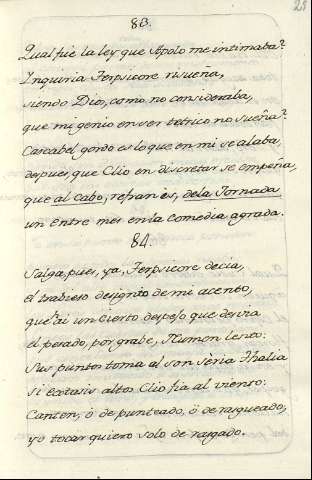 25
83.
Qual fue la ley que Apolo me intimaba?
Inquiria Terpsicore risueña,
siendo Dios, como no consideraba,
que mi genio en ser tetrico no sueña?
Cascabel gordo es lo que en mi se alaba,
despues, que Clio en discretar se empeña,
que al cabo, refran es, de la Jornada
un entre mes en la Comedia agrada.
84.
Salga, pues, ya, Terpsicore decia,
el trabieso designio de mi acento,
que ai un cierto despejo que desvia
el pesado, por grabe, Numen lento:
Sus puntos toma al son sèria Thalia
si extasis altos Clio fia al viento:
Canten, ò de punteado, ò de rasgueado,
yo tocar quiero solo de rasgado.